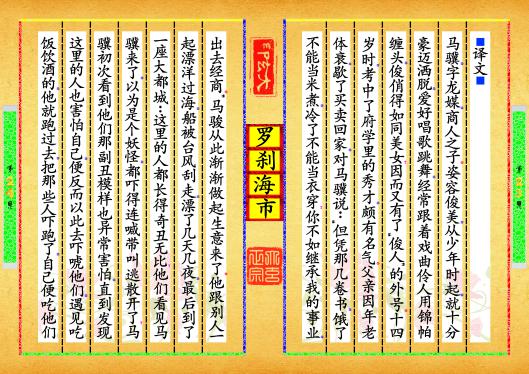 ■译文■
马骥字龙媒商人之子姿容俊美从少年时起就十分
豪迈洒脱爱好唱歌跳舞经常跟着戏曲伶人用锦帕
缠头俊俏得如同美女因而又有了“俊人”的外号十四
岁时考中了府学里的秀才颇有名气父亲因年老
体衰歇了买卖回家对马骥说：“但凭那几卷书饿了
不能当米煮冷了不能当衣穿你不如继承我的事业
罗刹海市
出去经商”马骏从此渐渐做起生意来了他跟别人一
起漂洋过海船被台风刮走漂了几天几夜最后到了
一座大都城…这里的人都长得奇丑无比他们看见马
骥来了以为是个妖怪都吓得连喊带叫逃散开了马
骥初次看到他们那副丑模样也异常害怕直到发现
这里的人也害怕自己便反而以此去吓唬他们遇见吃
饭饮酒的他就跑过去把那些人吓跑了自己便吃他们